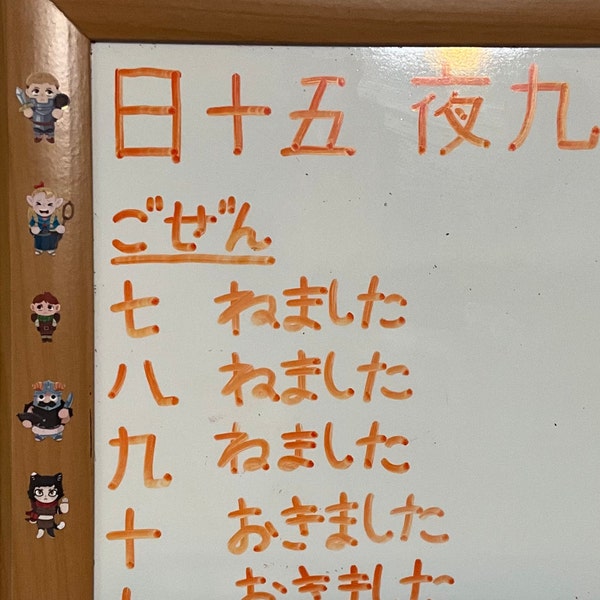 日十五 夜九
ごぜん
七 ねました
八 ねました
九 ねました
十 おきました
おきました